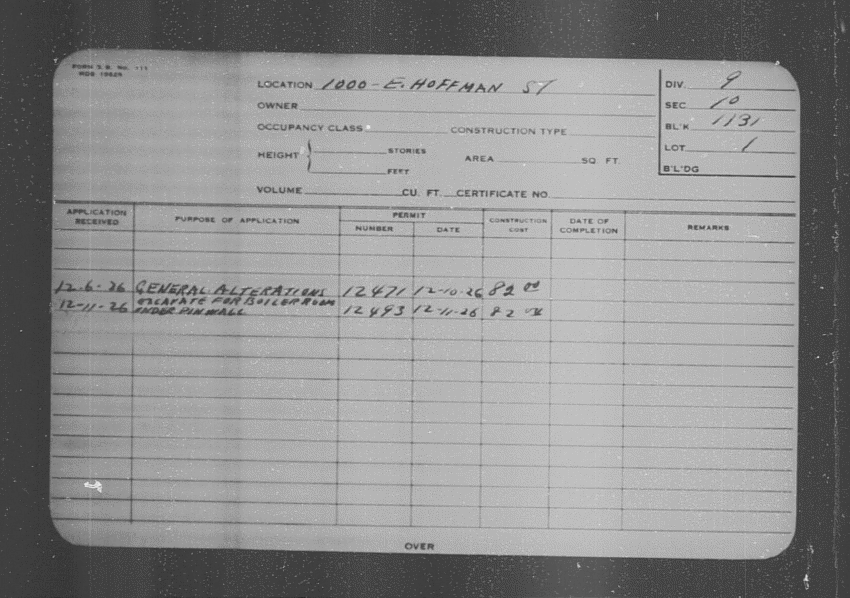 FORM S.B. No. 111
LOCATION 1000 - E. HOFFMAN ST
DIV. 9
OWNER
SEC 10
OCCUPANCY CLASS CONSTRUCTION TYPE
BL'K 1131
HEIGHT { STORIES AREA SQ. FT.
FEET
LOT 1
B'L'DG
VOLUME CU. FT. CERTIFICATE NO.
APPLICATION RECEIVED PURPOSE OF APPLICATION PERMIT NUMBER DATE CONSTRUCTION COST DATE OF COMPLETION REMARKS
12-6-26 GENERAL ALTERATIONS 12471 12-10-26 82 00
12-11-26 EXCAVATE FOR BOILER ROOM
UNDER PIN WALL 12493 12-11-26 82
OVER